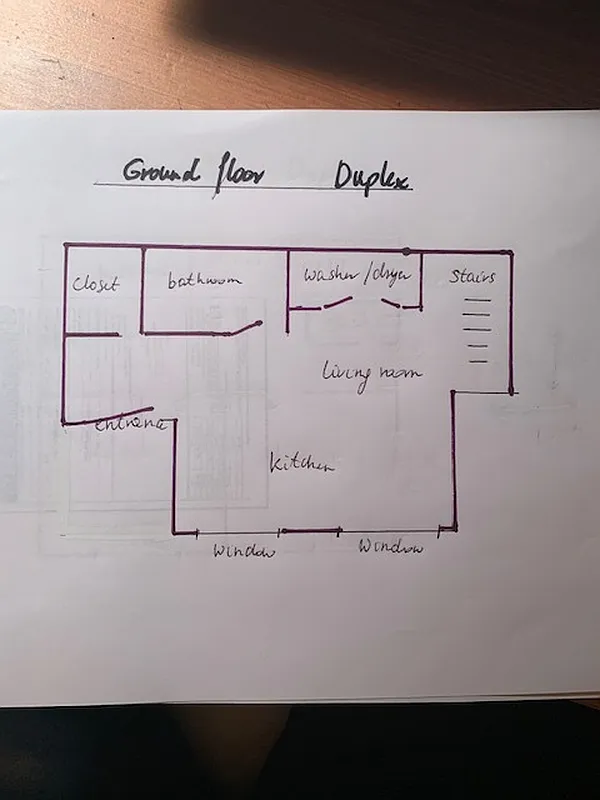 Ground floor Duplex
closet bathroom washer/dryer stairs
living room
entrance
kitchen
window window